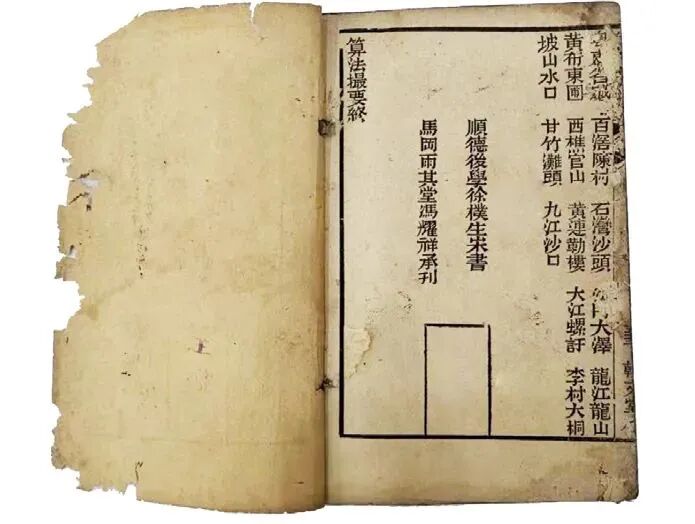 百滘陳村 石灣沙頭 大澤 龍江龍山
黃布東圃 西樵官山 黃蓮勒樓 大江螺 李村大桐
坡山水口 甘竹灘頭 九江沙口
順德後學徐樸生宋書
馬岡雨其堂馮耀祥承刊
算法撮要終